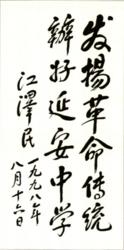 发揚革命传统
辦好延安中学
江澤民
一九九八年
八月十六日